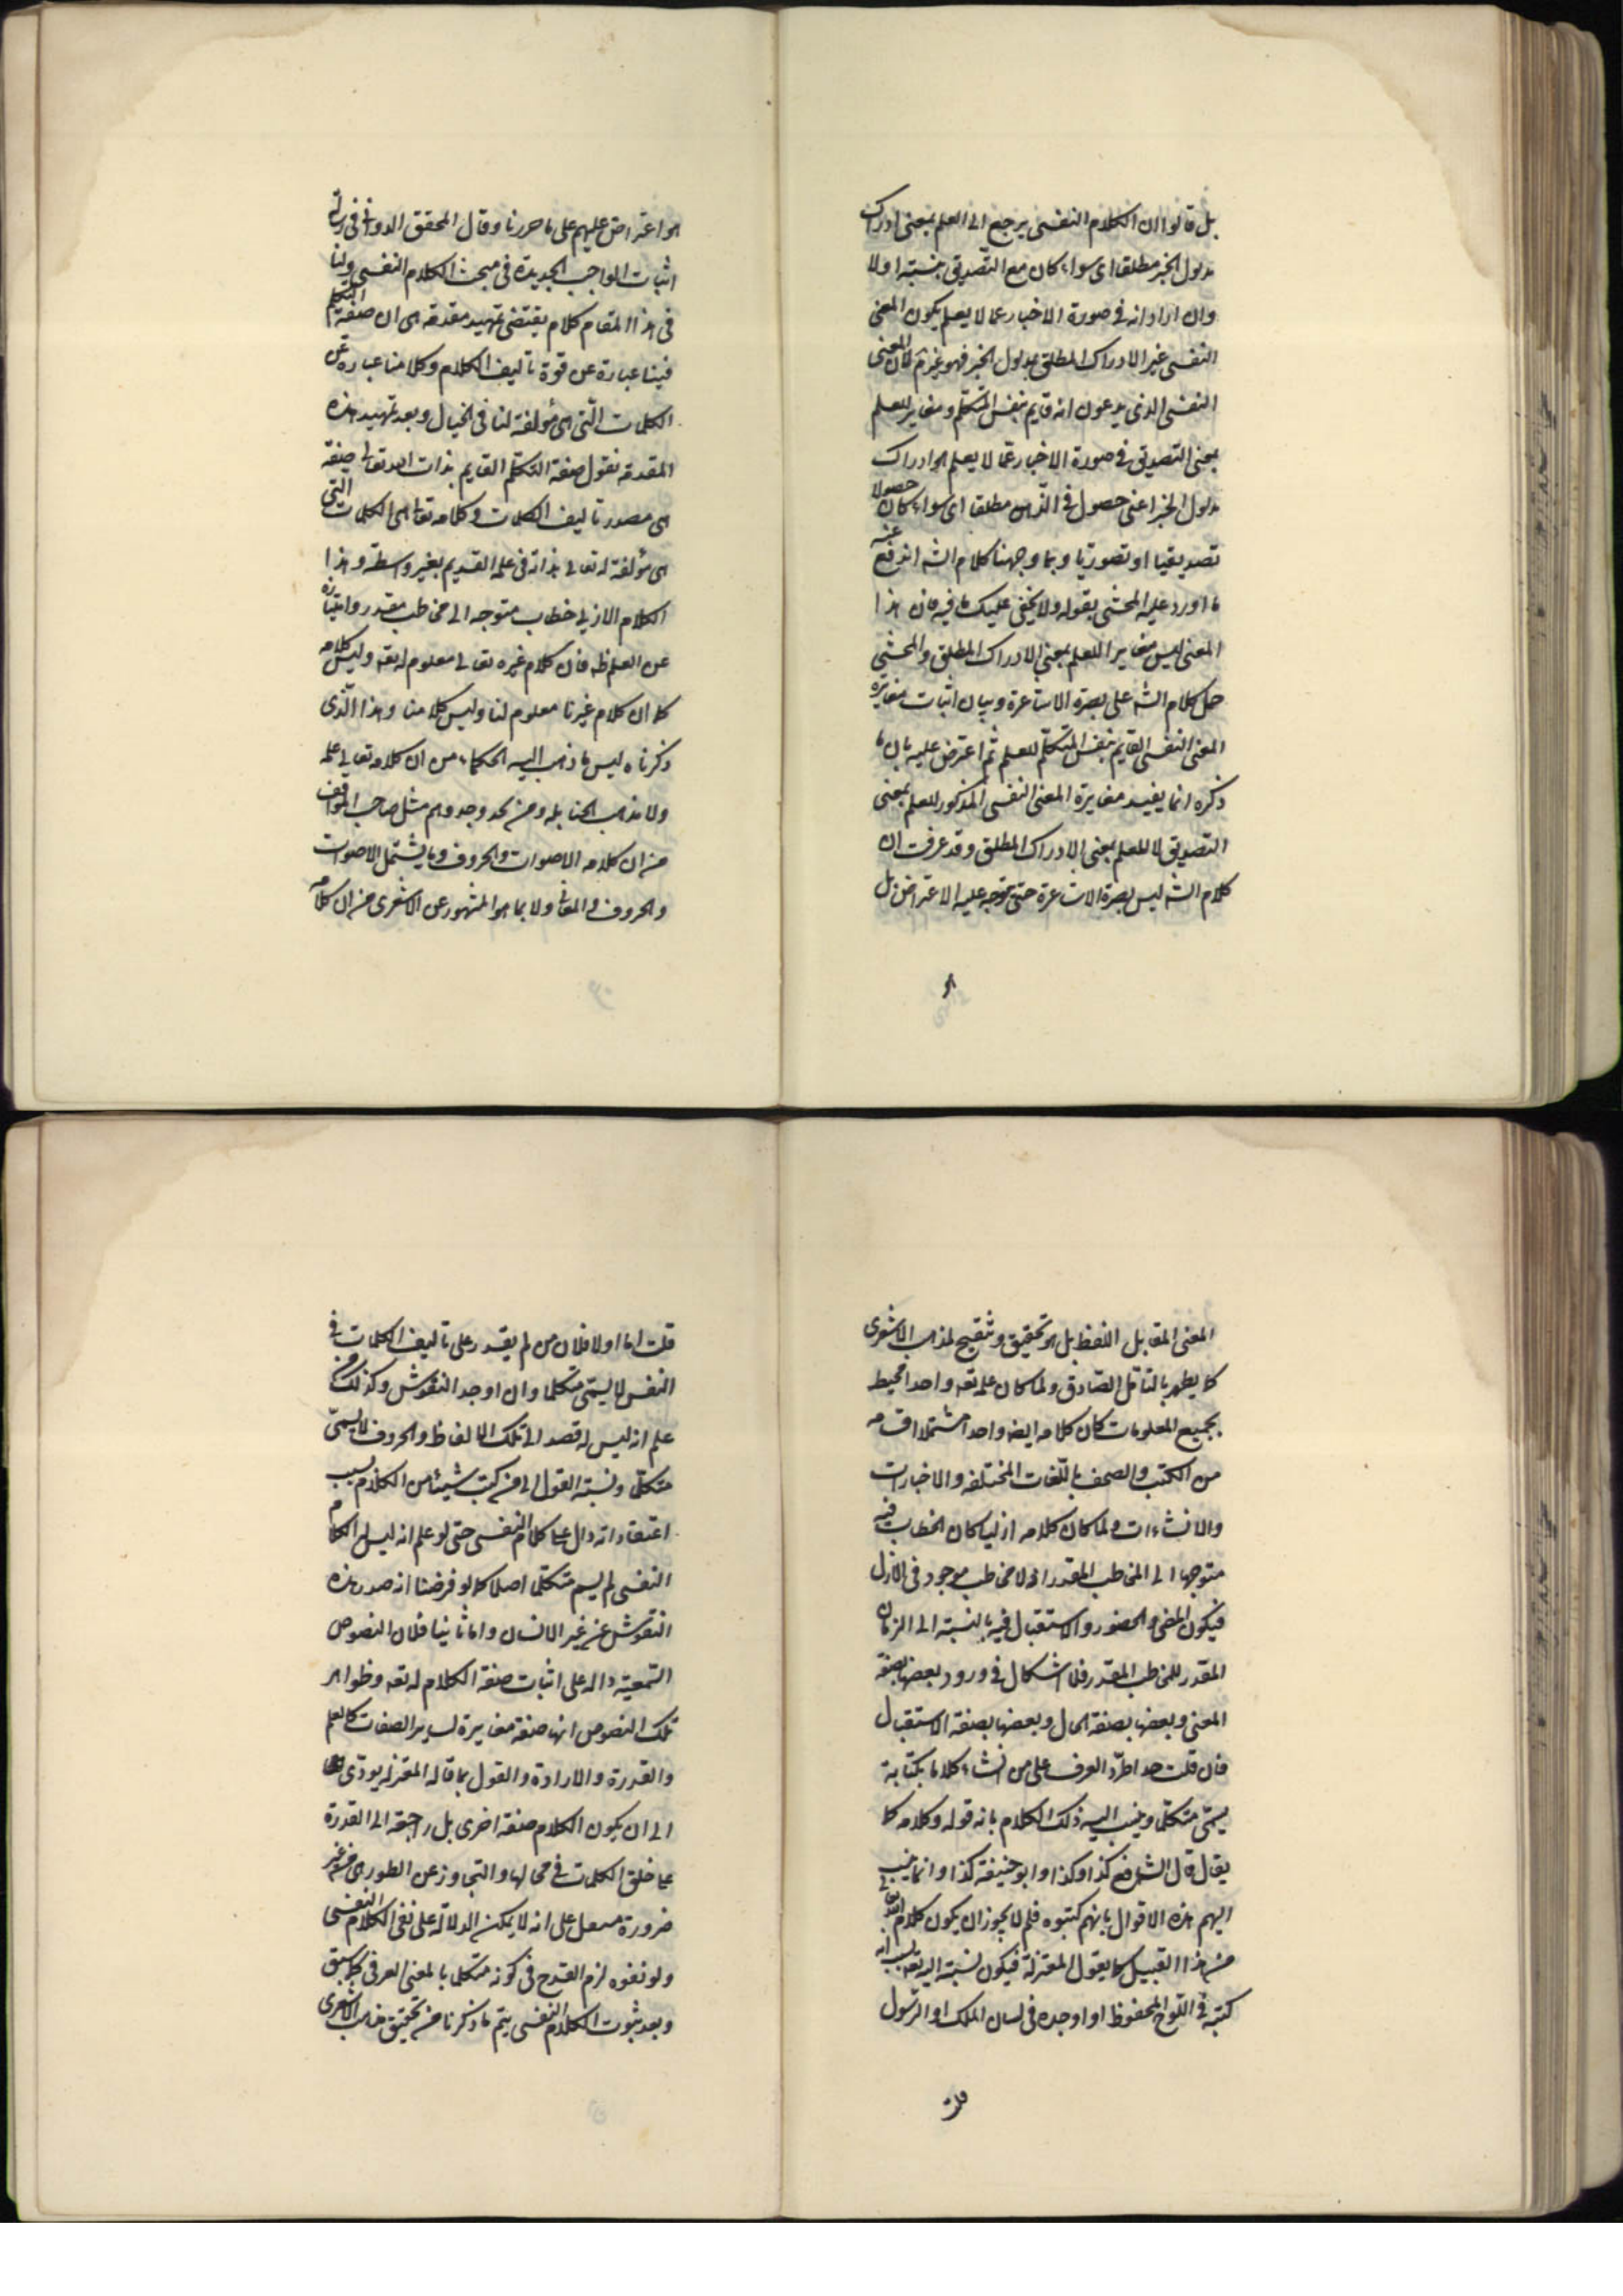 بل قالوا ان الكلام النفسى يرجع الى العلم بمعنى ادراك
مدلول الخبر مطلقا اى سواء كان مع التصديق بنسبته اولا
وان اراد انه فى صورة الاخبار عما لا يعلم يكون المعنى
النفسى غير الادراك المطلق بمدلول الخبر فهو غير تم فان المعنى
النفسى الذى يدعون انه قايم بنفس المتكلم ومغاير للعلم
بمعنى التصديق فى صورة الاخبار عما لا يعلم هو ادراك
مدلول الخبر اعنى حصول فى الذهن مطلقا اى سواء كان حصولا
تصديقيا او تصوريا وبما وجهنا كلام الشه اندفع عنه
ما اورد عليه المحشى بقوله ولا يخفى عليك ما فيه فان هذا
المعنى ليس مغايرا للعلم بمعنى الادراك المطلق والمحشى
حمل كلام الشه على نصرة الاشاعرة وبيان اثبات مغايرة
المعنى النفسى القايم بنفس المتكلم للعلم ثم اعترض عليه بان ما
ذكره انما يفيد مغايرة المعنى النفسى المذكور للعلم بمعنى
التصديق لا للعلم بمعنى الادراك المطلق وقد عرفت ان
كلام الشه ليس بنصرة الاشاعرة حتى يتوجه عليه الاعتراض بل
هو
هو اعتراض عليهم على ما حررنا وقال المحقق الدوانى فى رسالة
اثبات الواجب الجديدة فى مبحث الكلام النفسى ولنا
فى هذا المقام كلام يقتضى تمهيد مقدمة هى ان صفة التكلم
فينا عبارة عن قوة تاليف الكلام وكلامنا عبارة عن
الكلمات التى هى مؤلفة لنا فى الخيال وبعد تمهيد هذه
المقدمة نقول صفة التكلم القايم بذات الله تعالى صفة
هى مصدر تاليف الكلمات وكلامه تعالى هى الكلمات التى
هى مؤلفة له تعالى بذاته فى علمه القديم بغير واسطة وهذا
الكلام الازلى خطاب متوجه الى مخاطب مقدر وامتيازه
عن العلم ظه فان كلام غيره تعالى معلوم له تعه وليس كلامه
كما ان كلام غيرنا معلوم لنا وليس كلامنا وهذا الذى
ذكرناه ليس ما ذهب اليه الحكماء من ان كلامه تعالى علمه
ولا مذهب الحنابلة ومن يحذو حذوهم مثل صاحب المواقف
من ان كلامه الاصوات والحروف وما يشتمل الاصوات
والحروف والمعانى ولا بما هو المشهور عن الاشعرى من ان كلامه
المعنى المقابل اللفظ بل هو تحقيق وتنقيح لمذهب الاشعرى
كما يظهر بالتامل الصادق ولما كان علمه تعه واحدا محيطا
بجميع المعلومات كان كلامه ايضا واحدا مشتملا اقسامه
من الكتب والصحف باللغات المختلفه والاخبارات
والانشاءات ولما كان كلامه ازليا كان الخطاب فيه
متوجها الى المخاطب المقدر اذ لا مخاطب موجود فى الازل
فيكون المضى والحضور والاستقبال فيه بالنسبة الى الزمان
المقدر للمخاطب المقدر فلا اشكال فى ورود بعضها بصفة
المعنى وبعضها بصفة الحال وبعضها بصفة الاستقبال
فان قلت هذا اطرد العرف على من انشاء كلاما بكتابة
يسمى متكلما وينسب اليه ذلك الكلام بانه قوله وكلامه كما
يقال قال الشافعى كذا وكذا وابو حنيفة كذا وانما ينسب
اليهم هذه الاقوال بانهم كتبوه فلم لا يجوز ان يكون كلام الله تعالى
من هذا القبيل كما يقول المعتزلة فيكون نسبته اليه تعه بسبب انه
كتبه فى اللوح المحفوظ او اوجده فى لسان الملك او الرسول
قلت
قلت اما اولا فلان من لم يقدر على تاليف الكلمات فى
النفس لا يسمى متكلما وان اوجد النقوش وكذلك من
علم انه ليس له قصد الى تلك الالفاظ والحروف لا يسمى
متكلما ونسبة القول الى من كتب شيئا من الكلام بسبب
اعتقاد انه دال على كلام النفسى حتى لو علم انه ليس له الكلام
النفسى لم يسم متكلما اصلا كما لو فرضنا انه صدر هذه
النقوش عن غير الانسان واما ثانيا فلان النصوص
السمعية داله على اثبات صفة الكلام له تعه وظواهر
تلك النصوص انها صفة مغايرة لساير الصفات كالعلم
والقدرة والارادة والقول بما قاله المعتزله يودى
الى ان يكون الكلام صفة اخرى بل راجعة الى القدرة
على خلق الكلمات فى محالها والتجاوز عن الظواهر من غير
ضرورة على انه لا يمكن الدلالة على نفى الكلام النفسى
ولو نفوه لزم القدح فى كونه متكلما بالمعنى العرفى كما سبق
وبعد ثبوت الكلام النفسى يتم ما ذكرنا من تحقيق مذهب الاشعرى